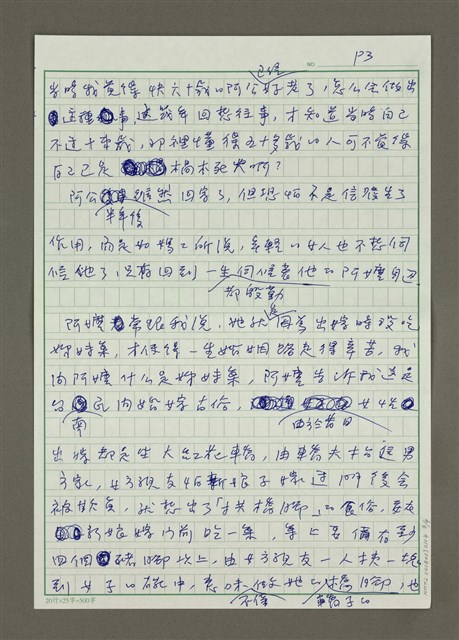 NO P3
已經
當時我覺得快六十歲的阿公好老了，怎么會做出
這種事，這幾年回想往事，才知道當時自己
不過十來歲，那裡懂得五十多歲的人可不覺得
自己已是槁木死灰啊？
阿公雖然回家了，但恐怕不是信發生了
半年後
作用，而是如媽媽所說，年輕的女人也不想伺
候他了，只有回到一生伺候著他的阿嬤身邊
都殷勤
阿嬤常跟我說，她就是因為出嫁時沒吃
姊妹桌，才使得一生婚姻路走得辛苦，我
問阿嬤什么是姊妹桌，阿嬤告訴我這是
台民間婚嫁古俗，女兒
南 由於昔日
出嫁都是坐大紅花轎，由轎夫抬到男
方家，女方親友怕新娘子嫁過門後會
被欺負，就想出了「才扶橋腳」的食俗，要在
新娘嫁門前吃一桌，等上菜備有
四個豬腳以上，由女方親友一人挾一塊
到女子的碗中，意味她的腳，也
不僅 轎子的
20行×25字=500字